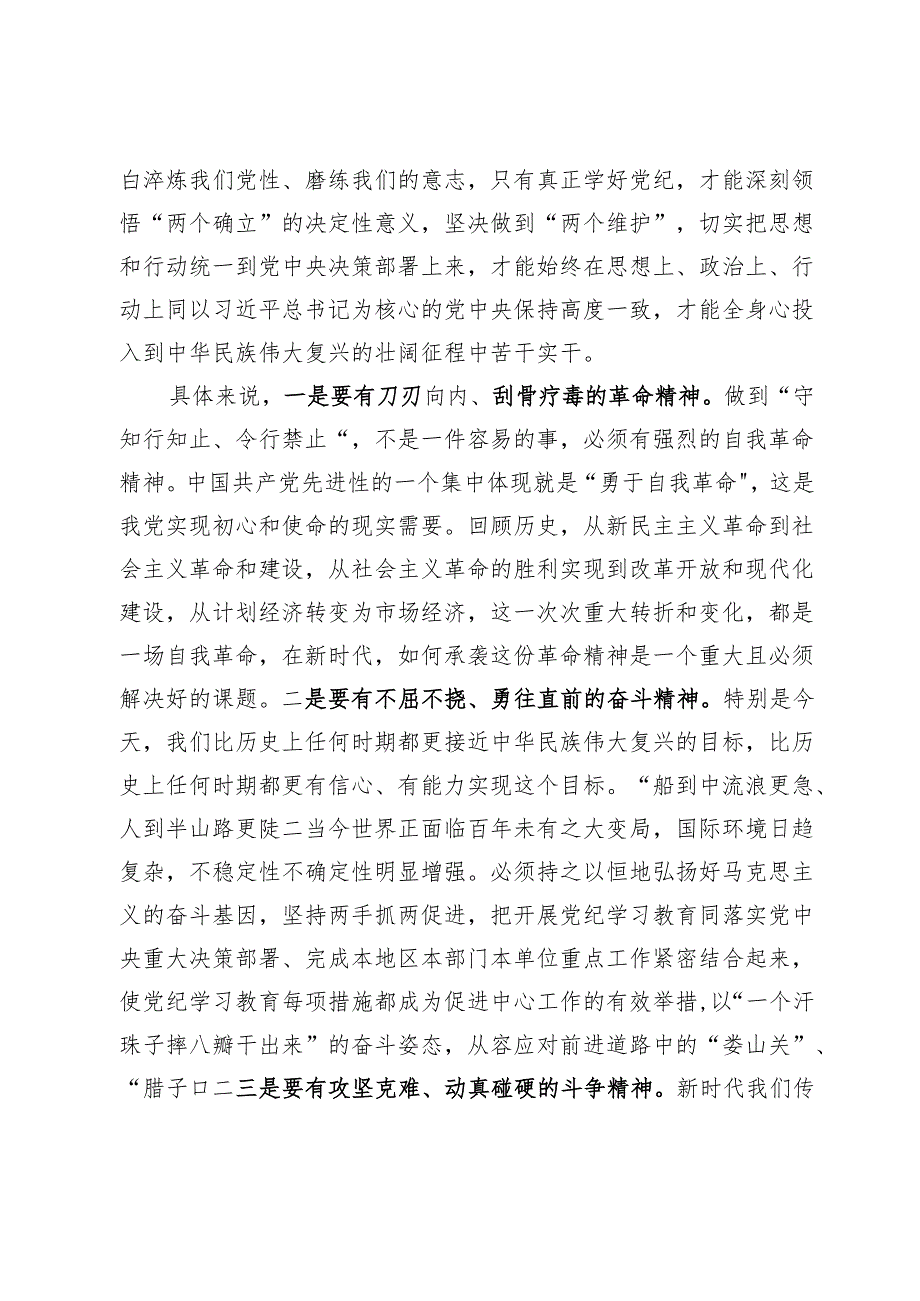 白淬炼我们党性、磨练我们的意志，只有真正学好党纪，才能深刻领
悟“两个确立”的决定性意义，坚决做到“两个维护”，切实把思想
和行动统一到党中央决策部署上来，才能始终在思想上、政治上、行
动上同以习近平总书记为核心的党中央保持高度一致，才能全身心投
入到中华民族伟大复兴的壮阔征程中苦干实干。
具体来说，一是要有刀刃向内、刮骨疗毒的革命精神。做到“守
知行知止、令行禁止“，不是一件容易的事，必须有强烈的自我革命
精神。中国共产党先进性的一个集中体现就是“勇于自我革命"，这是
我党实现初心和使命的现实需要。回顾历史，从新民主主义革命到社
会主义革命和建设，从社会主义革命的胜利实现到改革开放和现代化
建设，从计划经济转变为市场经济，这一次次重大转折和变化，都是
一场自我革命，在新时代，如何承袭这份革命精神是一个重大且必须
解决好的课题。二是要有不屈不挠、勇往直前的奋斗精神。特别是今
天，我们比历史上任何时期都更接近中华民族伟大复兴的目标，比历
史上任何时期都更有信心、有能力实现这个目标。“船到中流浪更急、
人到半山路更陡二当今世界正面临百年未有之大变局，国际环境日趋
复杂，不稳定性不确定性明显增强。必须持之以恒地弘扬好马克思主
义的奋斗基因，坚持两手抓两促进，把开展党纪学习教育同落实党中
央重大决策部署、完成本地区本部门本单位重点工作紧密结合起来，
使党纪学习教育每项措施都成为促进中心工作的有效举措,以“一个汗
珠子摔八瓣干出来”的奋斗姿态，从容应对前进道路中的“娄山关”、
“腊子口二三是要有攻坚克难、动真碰硬的斗争精神。新时代我们传